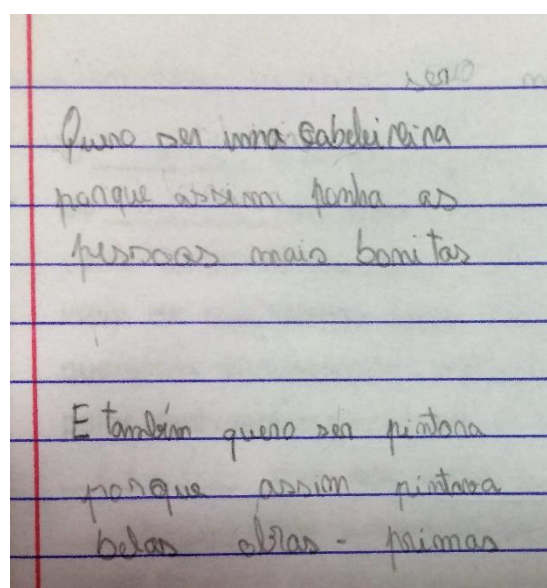 sero
Quero ser uma cabeleireira
porque assim ponha as
pessoas mais bonitas
E também quero ser pintora
porque assim pintava
belas obras-primas